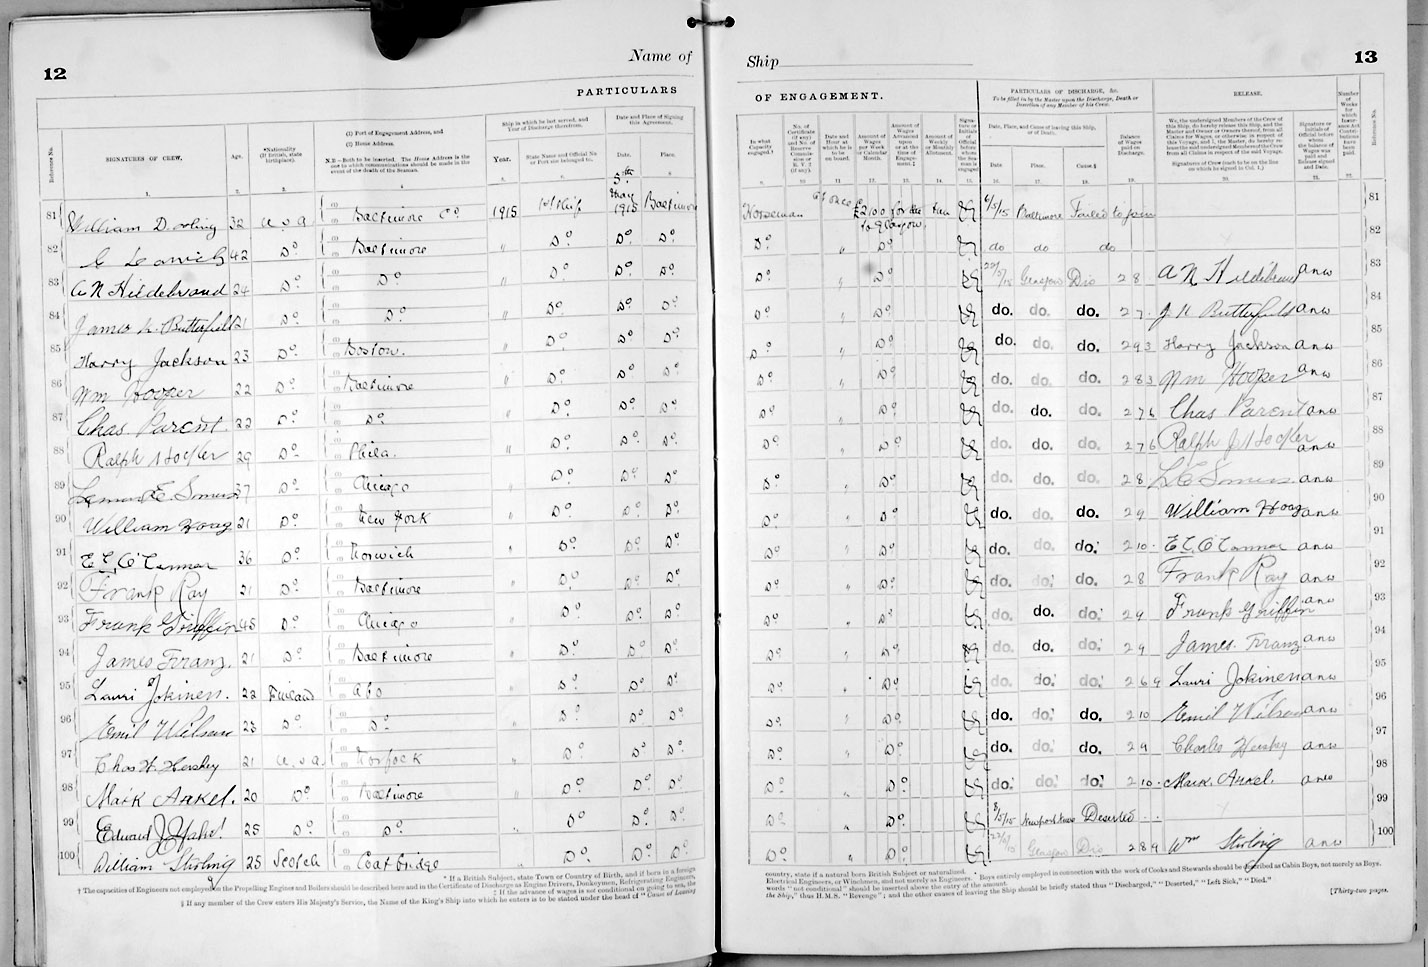 12
Name of
PARTICULARS
Reference No.
SIGNATURES OF CREW.
Age.
*Nationality (If British, state birthplace).
(1) Port of Engagement Address, and
(2) Home Address.
N.B.—Both to be inserted. The Home Address is the one to which communications should be made in the event of the death of the Seaman.
Ship in which he last served, and Year of Discharge therefrom.
Year.
State Name and Official No. or Port she belonged to.
Date and Place of Signing this Agreement.
Date.
Place.
81 William D. 32 U S A Baltimore Co. 1915 1st Ship 5th May 1915 Baltimore
82 42 Do Baltimore " Do Do Do
83 A N Hildebrand 24 Do Do " Do Do Do
84 James K. Butterfield 21 Do Do " Do Do Do
85 Harry Jackson 23 Do Boston. " Do Do Do
86 Wm Hooper 22 Do Baltimore " Do Do Do
87 Chas Parent. 22 Do Do " Do Do Do
88 Ralph 29 Do Phila. " Do Do Do
89 E. Somers 37 Do Chicago " Do Do Do
90 William Hoag 21 Do New York " Do Do Do
91 E C O'Connor 36 Do Norwich " Do Do Do
92 Frank Ray 21 Do Baltimore " Do Do Do
93 Frank Griffin 45 Do Chicago " Do Do Do
94 James Franz. 21 Do Baltimore " Do Do Do
95 Lauri Jokinen. 22 Finland Abo " Do Do Do
96 Emil Wilson 23 Do Do " Do Do Do
97 Chas H. Hershey 21 U.S.A. Norfolk " Do Do Do
98 Mark Ankel. 20 Do Baltimore " Do Do Do
99 Edward J 25 Do Do " Do Do Do
100 William Stirling 25 Scotch Coatbridge " Do Do Do
* If a British Subject, state Town or Country of Birth, and if born in a foreign
† The capacities of Engineers not employed on the Propelling Engines and Boilers should be described here and in the Certificate of Discharge as Engine Drivers, Donkeymen, Refrigerating Engineers,
‡ If the advance of wages is not conditional on going to sea, the
§ If any member of the Crew enters His Majesty's Service, the Name of the King's Ship into which he enters is to be stated under the head of "Cause of Leaving
Ship
13
OF ENGAGEMENT.
In what Capacity engaged.†
No. of Certificate (if any) and No. of Reserve Commission or R. V. 2 (if any).
Date and Hour at which he is to be on board.
Amount of Wages per Week or Calendar Month.
Amount of Wages Advanced upon or at the time of Engagement.‡
Amount of Weekly or Monthly Allotment.
Signature or Initials of Official before whom the Seaman is engaged
PARTICULARS OF DISCHARGE, &c.
To be filled in by the Master upon the Discharge, Death or Desertion of any Member of his Crew.
Date, Place, and Cause of leaving this Ship, or of Death.
Date.
Place.
Cause.§
Balance of Wages paid on Discharge.
RELEASE.
We, the undersigned Members of the Crew of this Ship, do hereby release this Ship, and the Master and Owner or Owners thereof, from all Claims for Wages, or otherwise in respect of this Voyage, and I, the Master, do hereby release the undersigned Members of the Crew from all Claims in respect of the said Voyage.
Signatures of Crew (each to be on the line on which he signed in Col. 1.)
Signature or Initials of Official before whom the balance of Wages was paid and Release signed and Date.
Number of Weeks for which Insurance Act Contributions have been paid.
Reference No.
Horseman At once £2.10.0 for the run to Glasgow. 6/5/15 Baltimore Failed to join 81
Do " Do do do do 82
Do " Do Glasgow Dis 2 8 A N Hildebrand anw 83
Do " Do do. do. do. 2 7 J K Butterfield anw 84
Do " Do do. do. do. 2 9 3 Harry Jackson anw 85
Do " Do do. do. do. 2 8 3 Wm Hooper anw 86
Do " Do do. do. do. 2 7 6 Chas Parent anw 87
Do " Do do. do. do. 2 7 6 Ralph J anw 88
Do " Do do. do. do. 2 8 L E Somers anw 89
Do " Do do. do. do. 2 9 William Hoag anw 90
Do " Do do. do. do. 2 10 E C O'Connor anw 91
Do " Do do. do. do. 2 8 Frank Ray anw 92
Do " Do do. do. do. 2 9 Frank Griffin anw 93
Do " Do do. do. do. 2 9 James Franz anw 94
Do " Do do. do. do. 2 6 9 Lauri Jokinen anw 95
Do " Do do. do. do. 2 10 Emil Wilson anw 96
Do " Do do. do. do. 2 9 Charles Hershey anw 97
Do " Do do. do. do. 2 10 Mark Ankel. anw 98
Do " Do 8/5/15 Newport News Deserted 99
Do " Do Glasgow Dis 2 8 9 Wm Stirling anw 100
country, state if a natural born British Subject or naturalized.
* Boys entirely employed in connection with the work of Cooks and Stewards should be described as Cabin Boys, not merely as Boys.
Electrical Engineers, or Winchmen, and not merely as Engineers.
words "not conditional" should be inserted above the entry of the amount.
the Ship," thus H.M.S. "Revenge"; and the other causes of leaving the Ship should be briefly stated thus "Discharged," "Deserted," "Left Sick," "Died."
[Thirty-two pages.